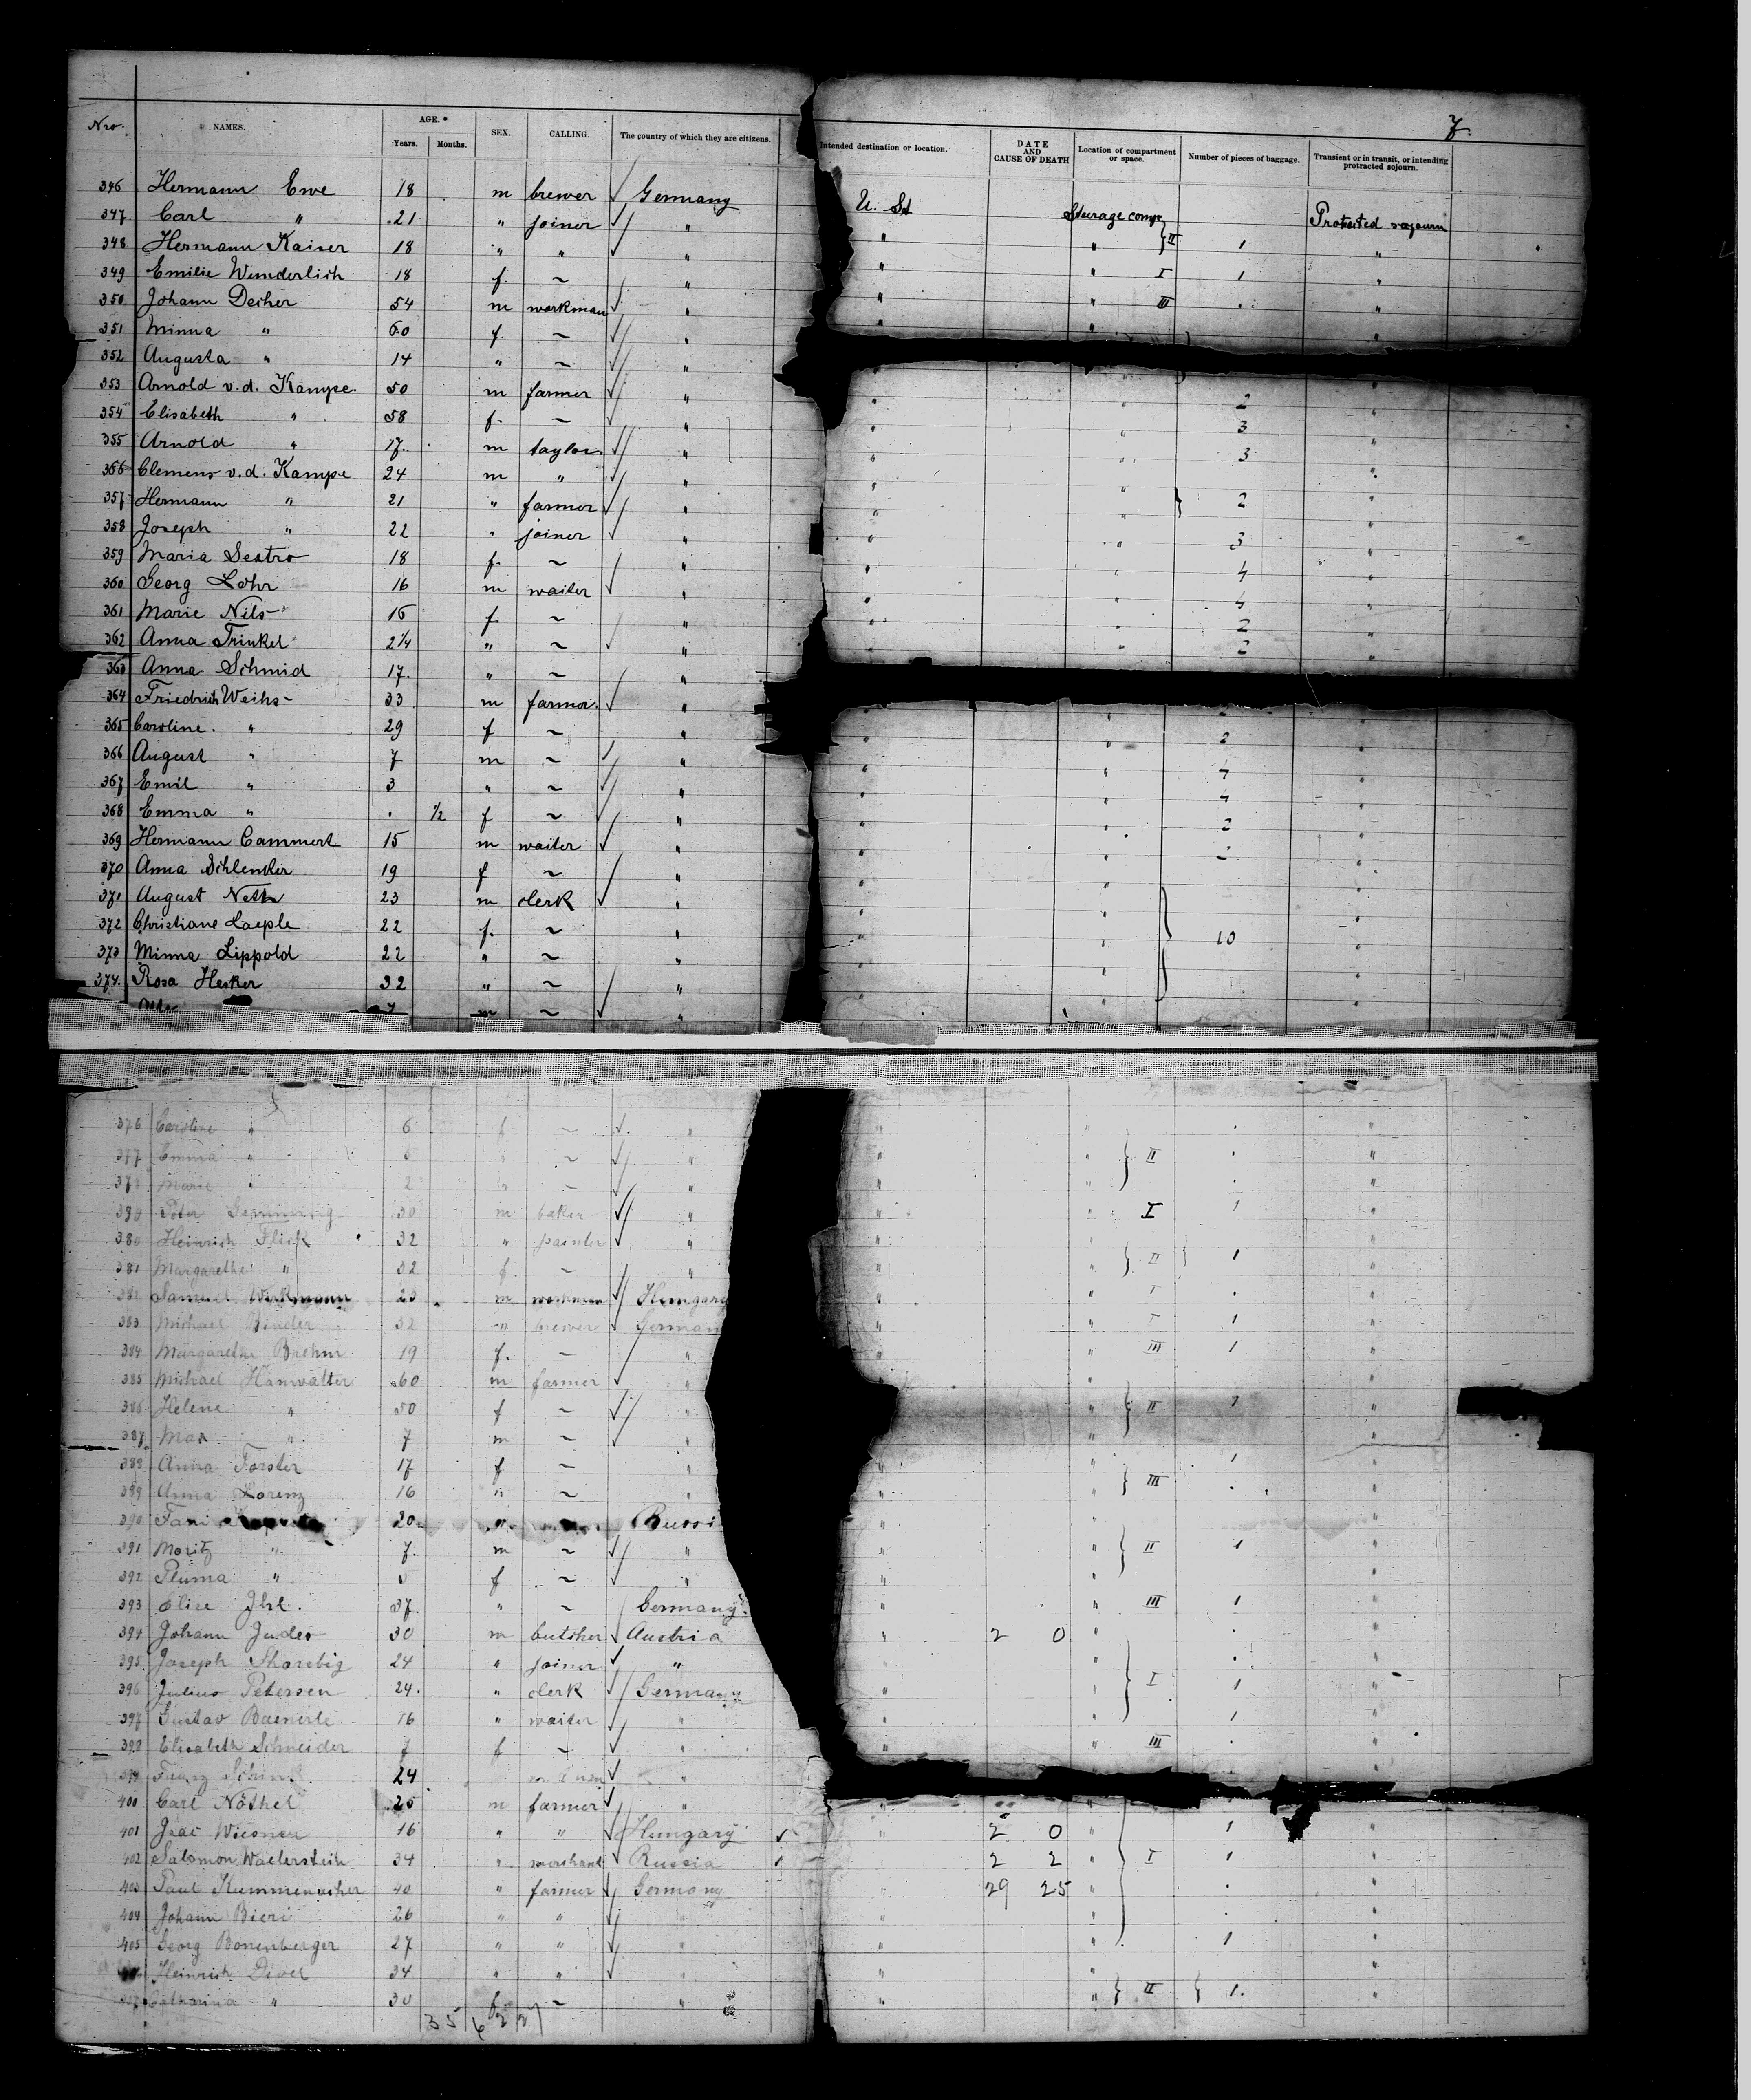 7.
Nro. NAMES. AGE. Years. Months. SEX. CALLING. The country of which they are citizens. Intended destination or location. DATE AND CAUSE OF DEATH Location of compartment or space. Number of pieces of baggage. Transient or in transit, or intending protracted sojourn.
346 Hermann Ewe 18 m brewer Germany U. St Steerage comp Protracted sojourn
347 Carl " 21 " joiner " " " II 1 "
348 Hermann Kaiser 18 " " " " " I 1 "
349 Emilie Wunderlich 18 f. ~ " " " III . "
350 Johann Decher 54 m workman " "
351 Minna " 60 f. ~ "
352 Augusta " 14 " ~ " "
353 Arnold v.d. Kampe 50 m farmer " " " 2 "
354 Elisabeth " 58 f. ~ " " " 3 "
355 Arnold " 17 m taylor " " " 3 "
356 Clemens v.d. Kampe 24 m " " " "
357 Hermann " 21 " farmer " " " 2 "
358 Joseph " 22 " joiner " " " 3 "
359 Maria Sextro 18 f. ~ " " " 4 "
360 Georg Lohr 16 m waiter " " "
361 Marie Nils 16 f. ~ " " " 2 "
362 Anna Trinkel 2¼ " ~ " " " 2 "
363 Anna Schmid 17. " ~ "
364 Friedrich Weihs 33 m farmer "
365 Caroline " 29 f ~ " " " 2 "
366 August " 7 m ~ " " "
367 Emil " 3 " ~ " " "
368 Emma " . ½ f ~ " " " 2 "
369 Hermann Cammert 15 m waiter " " "
370 Anna Schlenker 19 f ~ " " "
371 August Neth 23 m clerk " " "
372 Christiane Laeple 22 f. ~ " " " 10 "
373 Minna Lippold 22 " ~ " " "
374. Rosa Hesker 32 " ~ " " "
m ~ "
376 Caroline " 6 f ~ " " " . "
377 Emma " ~ " " " II . "
378 Marie " 2 " ~ " " " . "
Peter Gemming 30 m baker " " " I 1 "
380 Heinrich Flick 32 " painter " " "
381 Margarethe " 32 f ~ " " " II 1 "
382 Samuel Workmann 23 m workman Hungary " " I . "
383 Michael Binder 32 " brewer German " " I 1 "
384 Margarethe Brehm 19 f. ~ " " " III 1 "
385 Michael Hanwalter 60 m farmer " " "
386 Helene " 50 f ~ " " " II 1 "
387 Max " 7 m ~ " " " "
388 Anna Forster 17 f ~ " " " 1 "
389 Anna Lorenz 16 " ~ " " III . "
390 Fani 20 " Russi " "
391 Moritz " 7. m ~ " " " II 1 "
392 Pluma " f ~ " " " "
393 Elise Ihl. 37. " ~ Germany " " III 1 "
394 Johann Judes 30 m butcher Austria " 2 0 " . "
395 Joseph Skorebig 24 " joiner " " " . "
396 Julius Petersen 24. " clerk Germany " " I 1 "
397 Gustav Baeuerle 16 " waiter " " " 1 "
398 Elisabeth Schneider 7 f ~ " " " III . "
Franz 24 "
400 Carl Nöthel 25 m farmer " " " "
401 Isac Wiesner 16 " " Hungary " 2 0 " 1 "
402 Salomon Waelerstein 34 " merchant Russia 2 2 " I 1 "
403 Paul Kummenacher 40 " farmer Germany " 29 25 " . "
404 Johann Bieri 26 " " " " " . "
405 Georg Bonenberger 27 " " " " " 1 "
Heinrich Divel 34 " " " " " "
Catharina " 30 f ~ " " " II 1. "